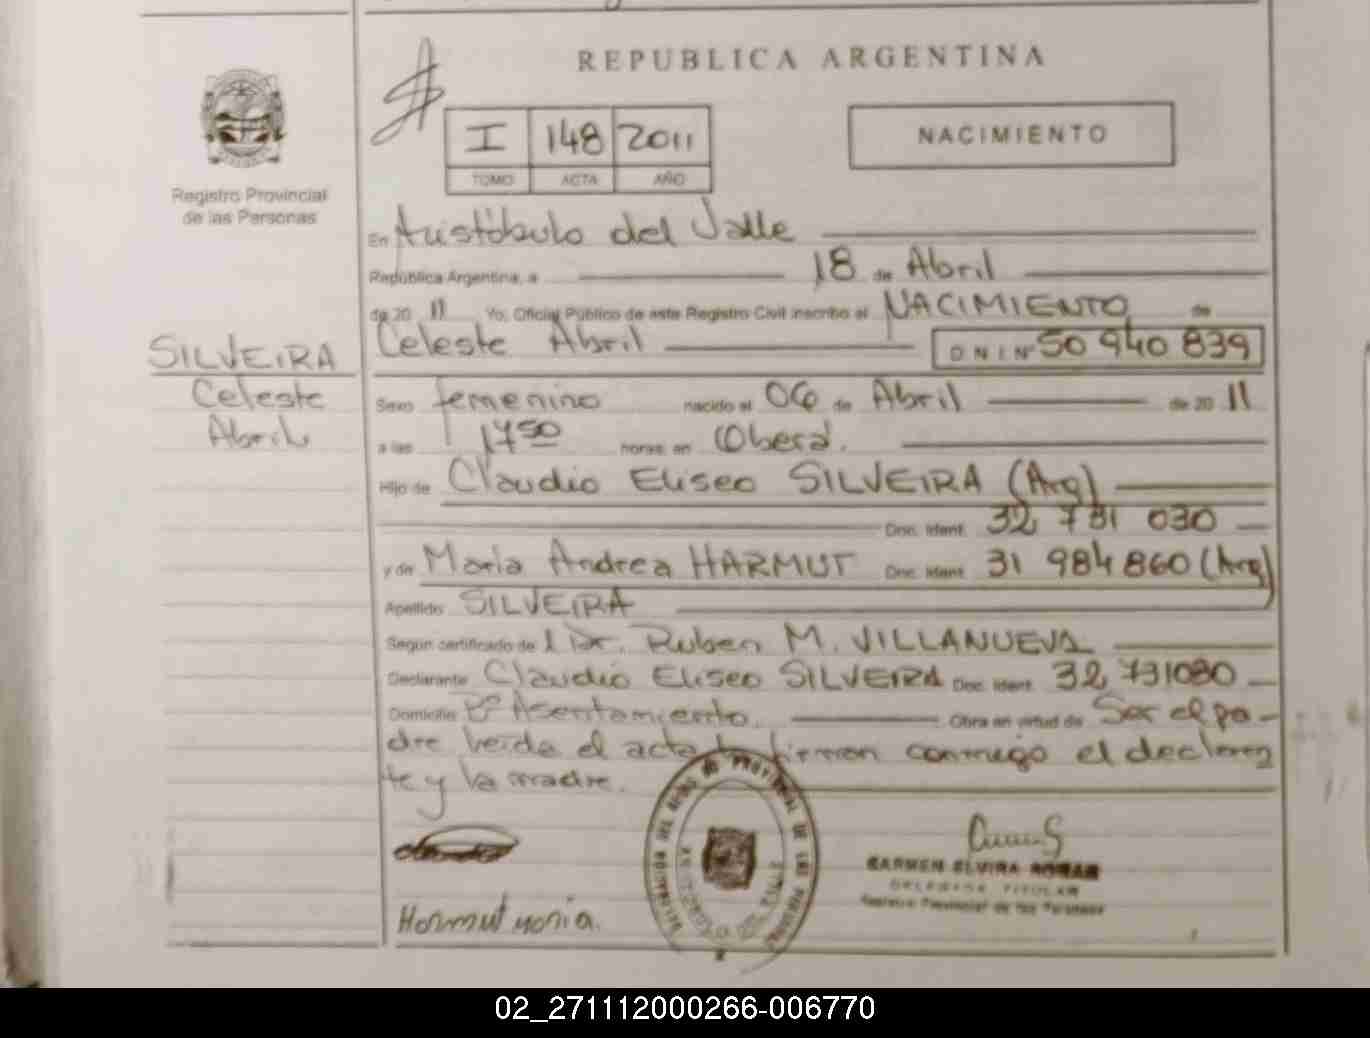 REPUBLICA ARGENTINA
I 148 2011
TOMO ACTA AÑO
NACIMIENTO
Registro Provincial
de las Personas
En Aristóbulo del Valle
República Argentina, a 18 de Abril
de 20 11 Yo, Oficial Público de este Registro Civil inscribo el NACIMIENTO de
Celeste Abril DNI Nº 50 940 839
SILVEIRA
Celeste
Abril
Sexo femenino nacido el 06 de Abril de 20 11
a las 1750 horas en Oberá.
Hijo de Claudio Eliseo SILVEIRA (Arg)
Doc. Ident. 32 731 030
y de María Andrea HARMUT Doc. Ident. 31 984 860 (Arg)
Apellido SILVEIRA
Según certificado de l Dr. Ruben M. VILLANUEVA
Declarante Claudio Eliseo SILVEIRA Doc. Ident. 32 731030
Domicilio Bº Asentamiento. Obra en virtud de Ser el pa-
dre leída el acta la firman conmigo el declaran
te y la madre.
CARMEN ELVIRA ROMAN
DELEGADA TITULAR
Registro Provincial de las Personas
Harmut maria.
02_271112000266-006770